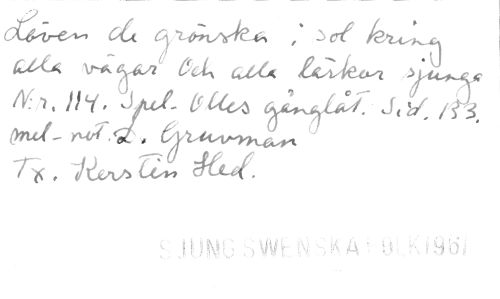 Löven de grönska i sol kring
alla vägar och alla lärkor sjunga
N:r. 114. Spel-Olles gånglåt. Sid. 133.
mel-not. L. Gruvman
Tx. Kersten Hed.
SJUNG SWENSKA FOLK 1961